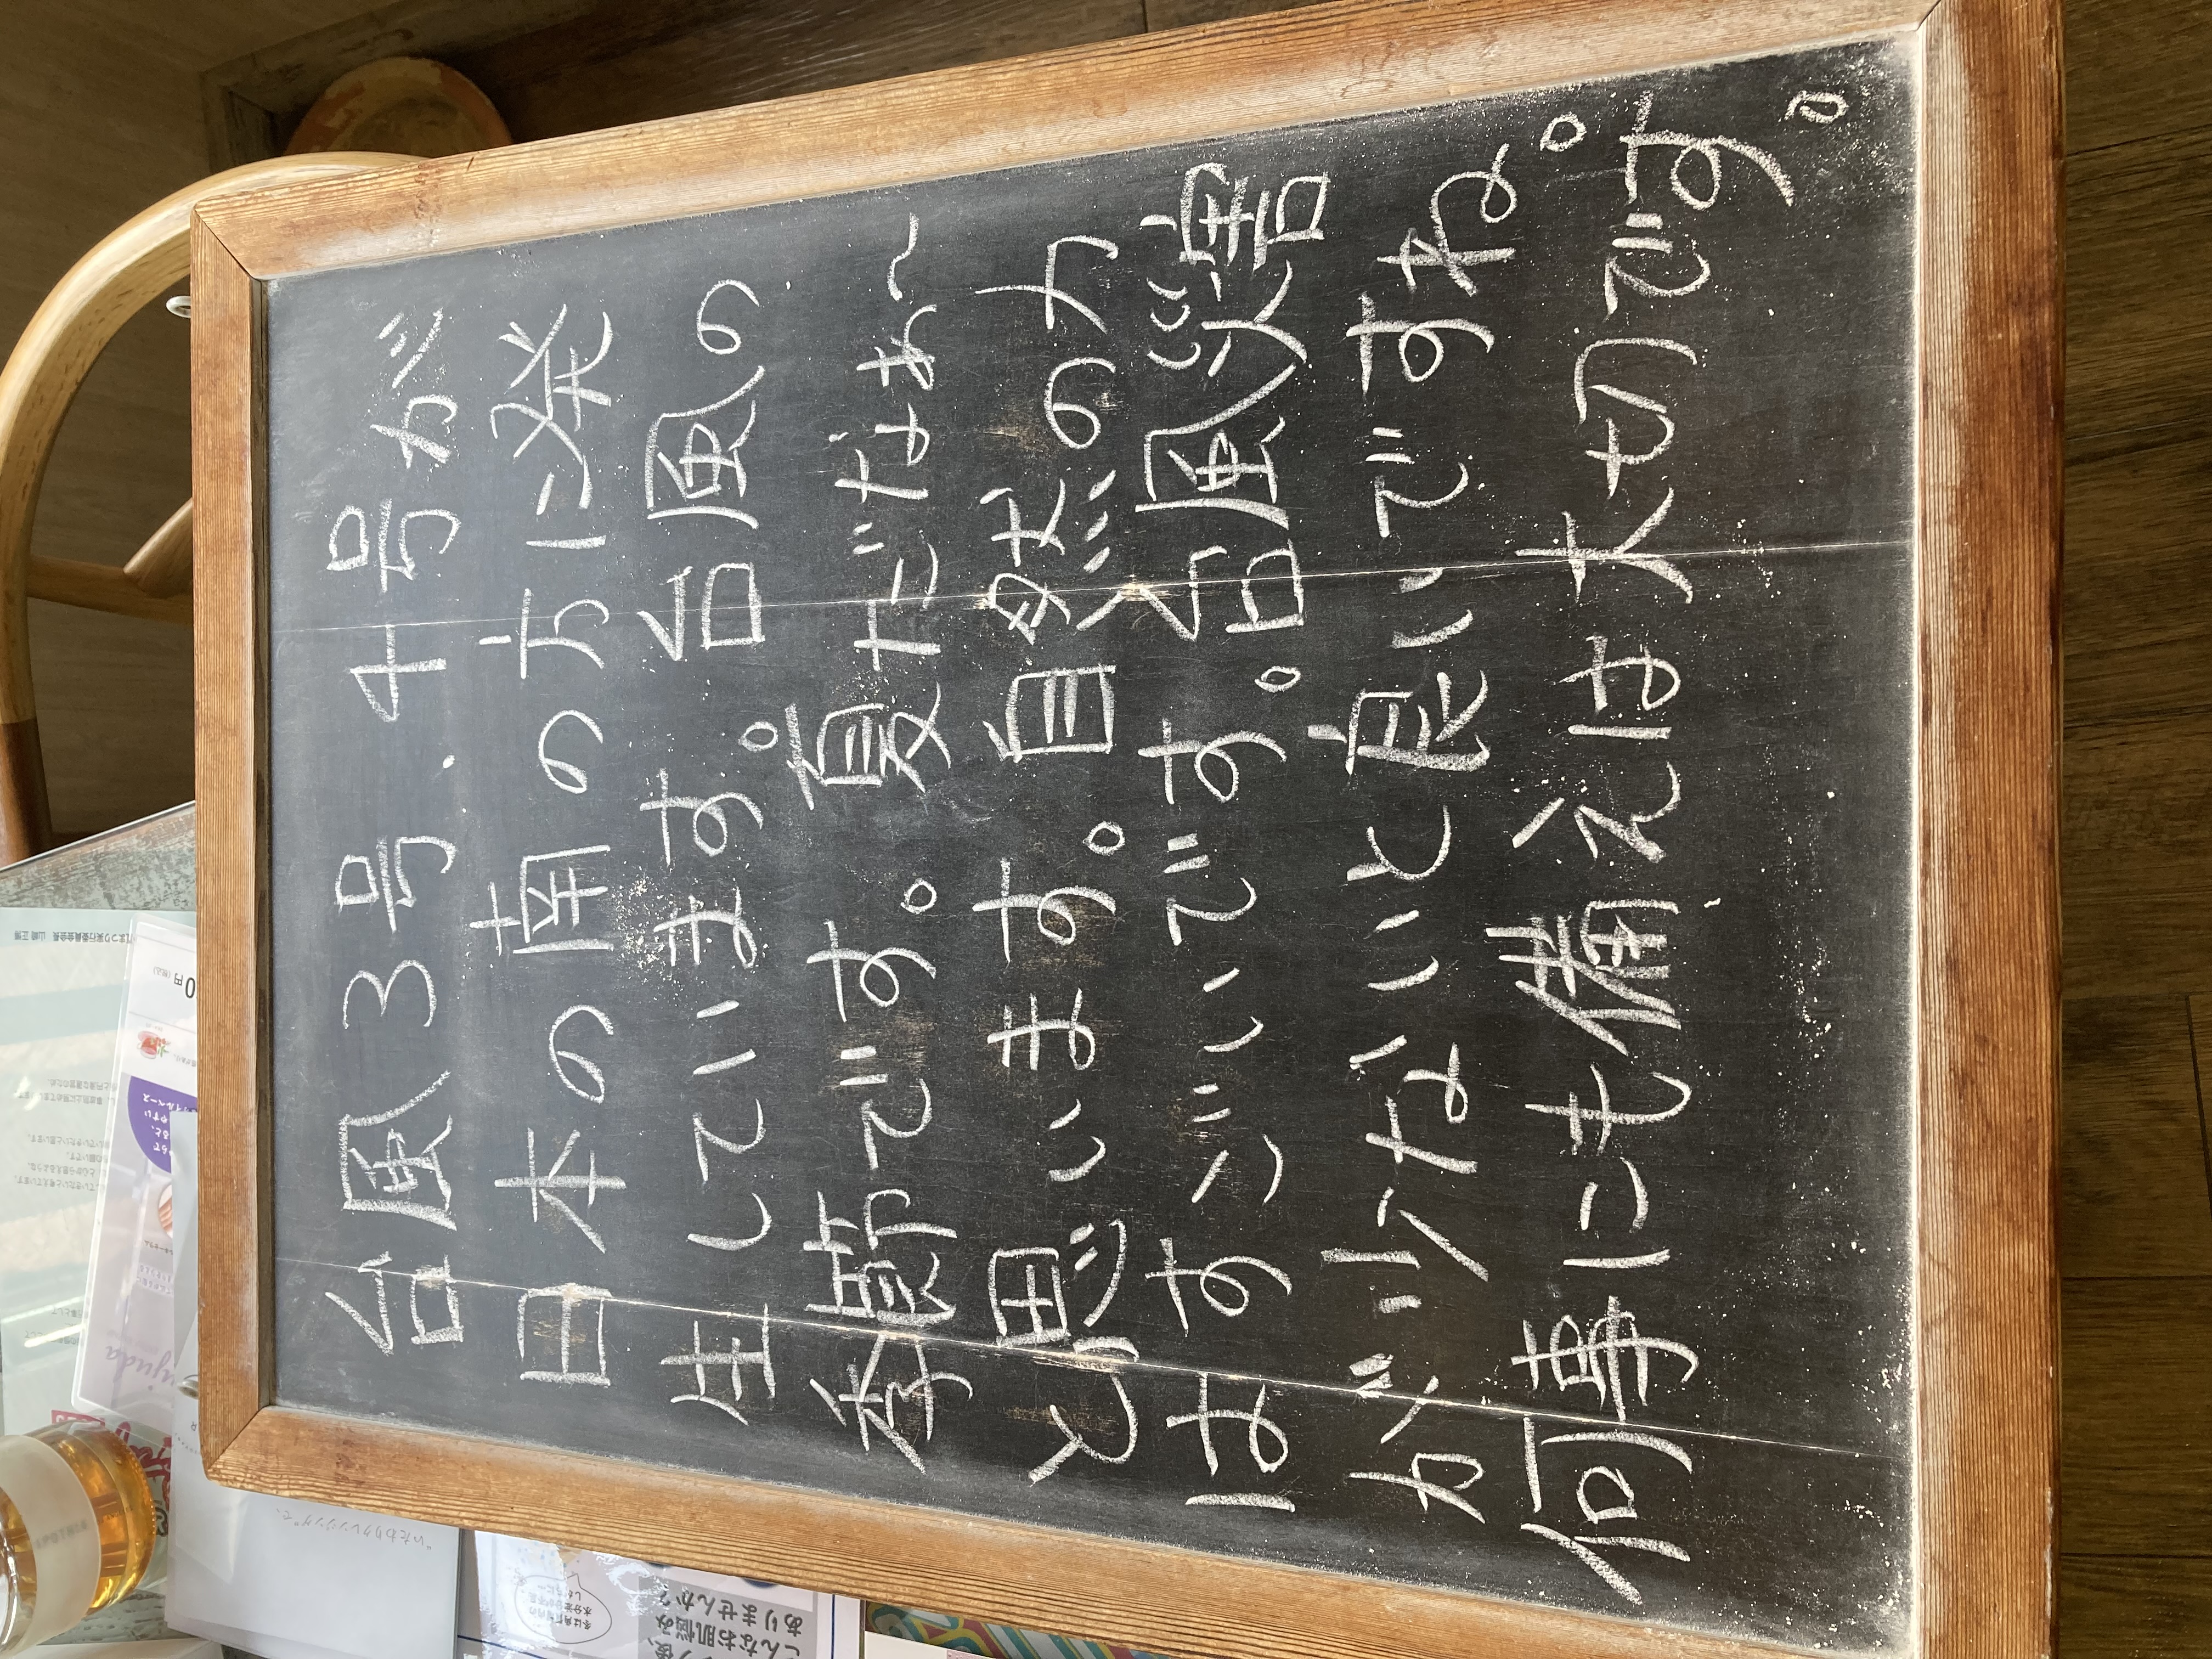 台風3号．4号が
日本の南の方に発
生しています。台風の
季節です。夏だなぁ〜
と思います。自然の力
はすごいです。台風災害
が少ないと良いですね。
何事にも備えは大切です。
こんなお肌悩み
ありませんか?